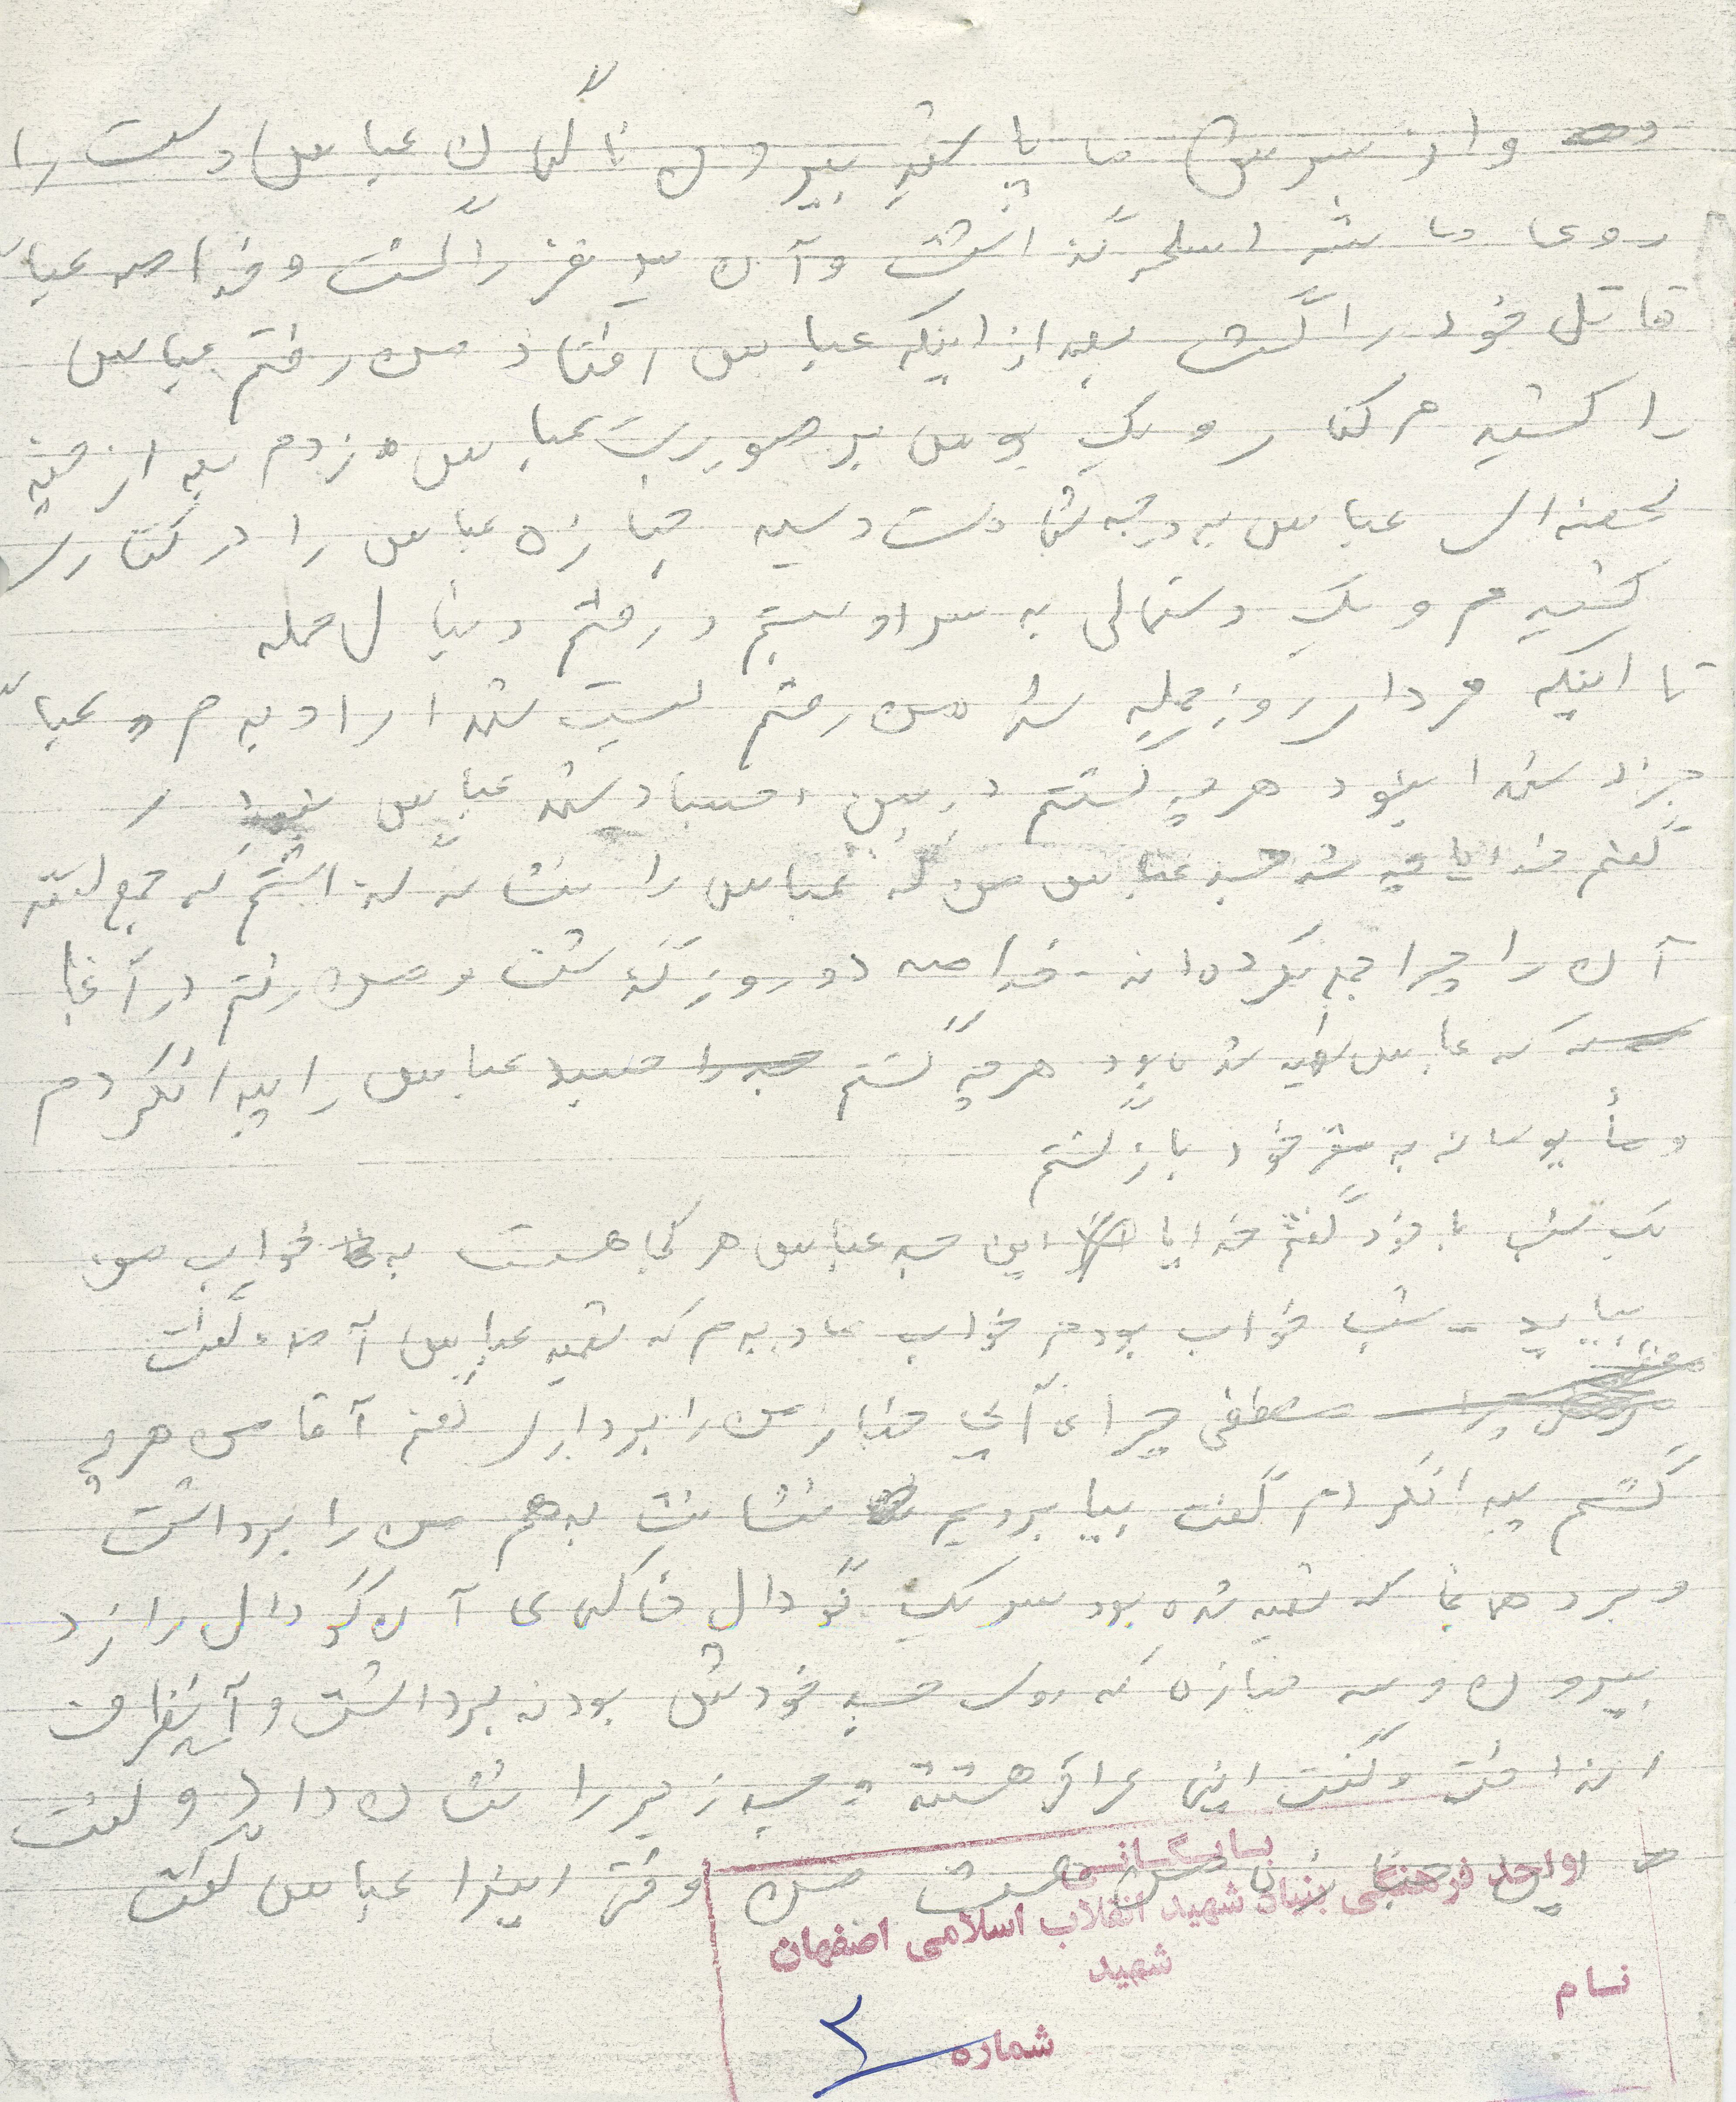 و از تیررس ما پاشید بیرون ناگهان عباس دست را
روی ماشه اسلحه گذاشت و آن سه نفر را کشت و خلاصه عباس
قاتل خود را کشت بعد از اینکه عباس افتاد من رفتم عباس
را کشیدم کنار و یک بوس بر صورت عباس زدم بعد از چند
لحظه ای عباس به درجه شهادت رسید جنازه عباس را در کناری
کشیدم و یک دستمالی به سر او بستم و رفتم دنبال حمله
تا اینکه فردای روز حمله شد من رفتم لیست شهدا را دیدم عباس
جزء شهدا نبود هر چه گشتم در بین اجساد شهدا عباس نبود
گفتم خدایا چه شد جسد عباس من که عباس را نشانه گذاشتم که جمع کنند
آن را چرا جمع نکرده اند - خلاصه دو روز گذشت و من رفتم در آنجا
که عباس شهید شده بود هر چه گشتم جسد عباس را پیدا نکردم
و مأیوسانه به مقر خود بازگشتم
یک شب با خود گفتم خدایا این جسد عباس هر کجا هست به خواب من
بیاید - شب خواب بودم خواب دیدم که شهید عباس آمد گفت
مصطفی چرا نمی آیی جنازه من را برداری گفتم آقا من هر چه
گشتم پیدا نکردم گفت بیا برویم نشانت بدهم من را برداشت
و برد همانجا که شهید شده بود سر یک گودال خاکهای آن گودال را زد
بیرون و سه جنازه که روی جسد خودش بودند برداشت و آن طرف
انداخت و گفت اینها عراقی هستند و جسد زیر را نشان داد و گفت
این جنازه من است من وقتی اینرا عباس گفت
بایگانی
واحد فرهنگی بنیاد شهید انقلاب اسلامی اصفهان
نام شهید
شماره